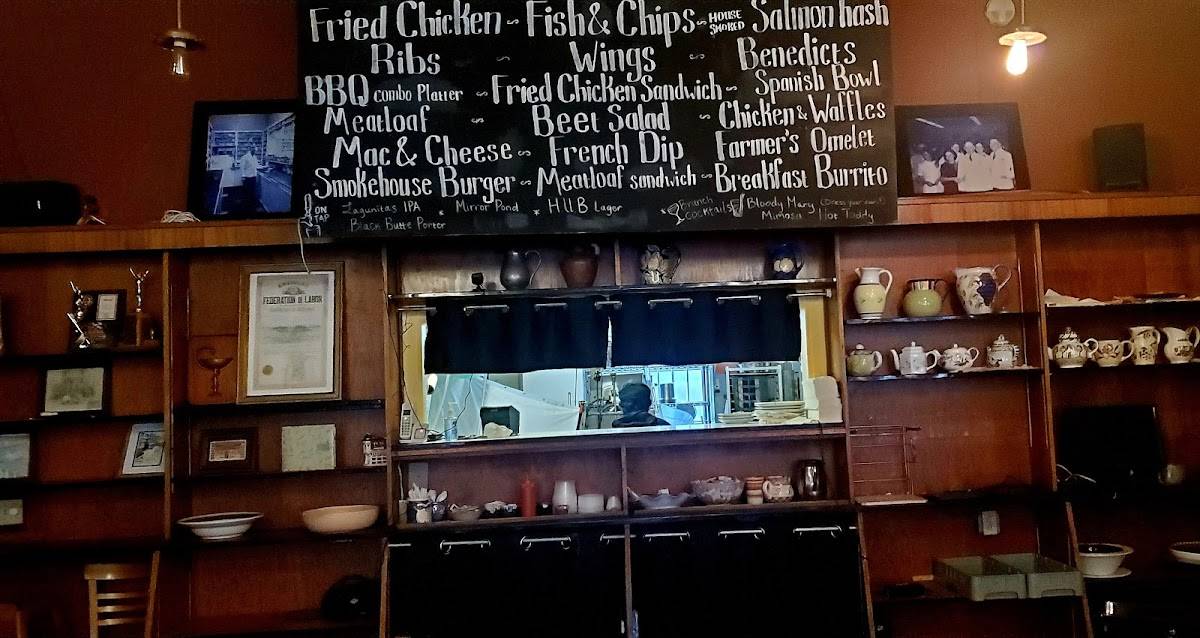 Fried Chicken ~ Fish & Chips ~ HOUSE SMOKED Salmon hash
Ribs ~ Wings ~ Benedicts
BBQ combo Platter ~ Fried Chicken Sandwich ~ Spanish Bowl
Meatloaf ~ Beet Salad ~ Chicken & Waffles
Mac & Cheese ~ French Dip Farmer's Omelet
Smokehouse Burger ~ Meatloaf sandwich ~ Breakfast Burrito
ON TAP Lagunitas IPA * Mirror Pond * HUB Lager * Brunch Cocktails Bloody Mary (Dress your own!)
Black Butte Porter Mimosa Hot Toddy
FEDERATION OF LABOR